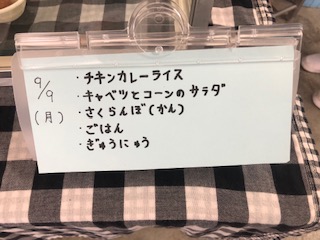 9/9
(月)
・チキンカレーライス
・キャベツとコーンのサラダ
・さくらんぼ(かん)
・ごはん
・ぎゅうにゅう